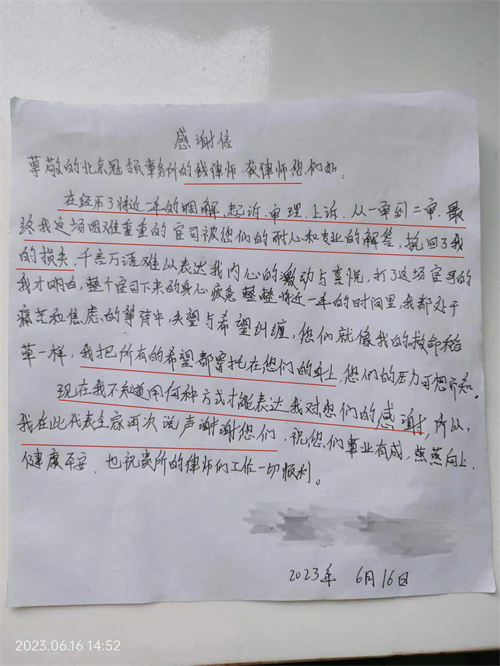 感谢信
尊敬的北京冠领事务所的钱律师、 律师您们好。
在经历了将近一年的调解、起诉、审理、上诉、从一审到二审、最
终我这场困难重重的官司被您们的耐心和专业的解答, 挽回了我
的损失, 千言万语难以从表达我内心的激动与喜悦, 打了这场官司的
我才明白, 整个官司下来的身心疲惫 整整将近一年的时间里, 我都处于
痛苦和焦虑的等待中, 失望与希望纠缠, 您们就像我的救命稻
草一样, 我把所有的希望都寄托在您们的身上, 您们的压力可想而知。
现在我不知道用何种方式才能表达我对您们的感谢, 所以,
我在此代表全家再次说声谢谢您们, 祝您们事业有成, 蒸蒸向上,
健康平安、也祝贵所的律师们工作一切顺利。
2023年 6月16日
2023.06.16 14:52